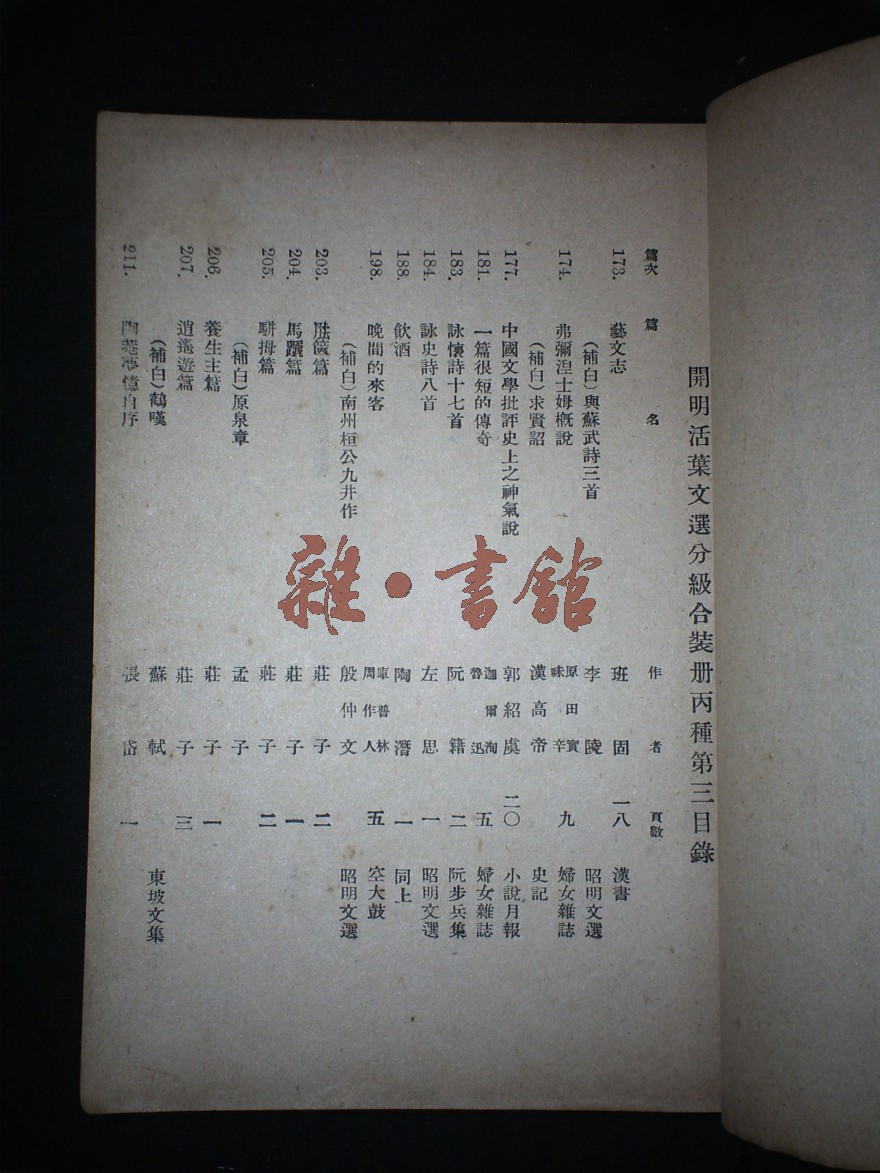 開明活葉文選分級合裝册丙種第三目錄
篇次 篇名 作者 頁數
173. 藝文志 班固 一八 漢書
(補白)與蘇武詩三首 李陵 昭明文選
174. 弗彌涅士姆概說 原田實 味辛 九 婦女雜誌
(補白)求賢詔 漢高帝 史記
177. 中國文學批評史上之神氣說 郭紹虞 二〇 小說月報
181. 一篇很短的傳奇 迦爾洵 魯迅 五 婦女雜誌
183. 詠懷詩十七首 阮籍 二 阮步兵集
184. 詠史詩八首 左思 一 昭明文選
188. 飲酒 陶潛 一 同上
198. 晚間的來客 庫普林 周作人 五 空大鼓
(補白)南州桓公九井作 殷仲文 昭明文選
203. 胠篋篇 莊子 二
204. 馬蹏篇 莊子 一
205. 駢拇篇 莊子 二
(補白)原泉章 孟子
206. 養生主篇 莊子 一
207. 逍遙遊篇 莊子 三
(補白)鶴嘆 蘇軾 東坡文集
211. 陶菴夢憶自序 張岱 一
雜·書館